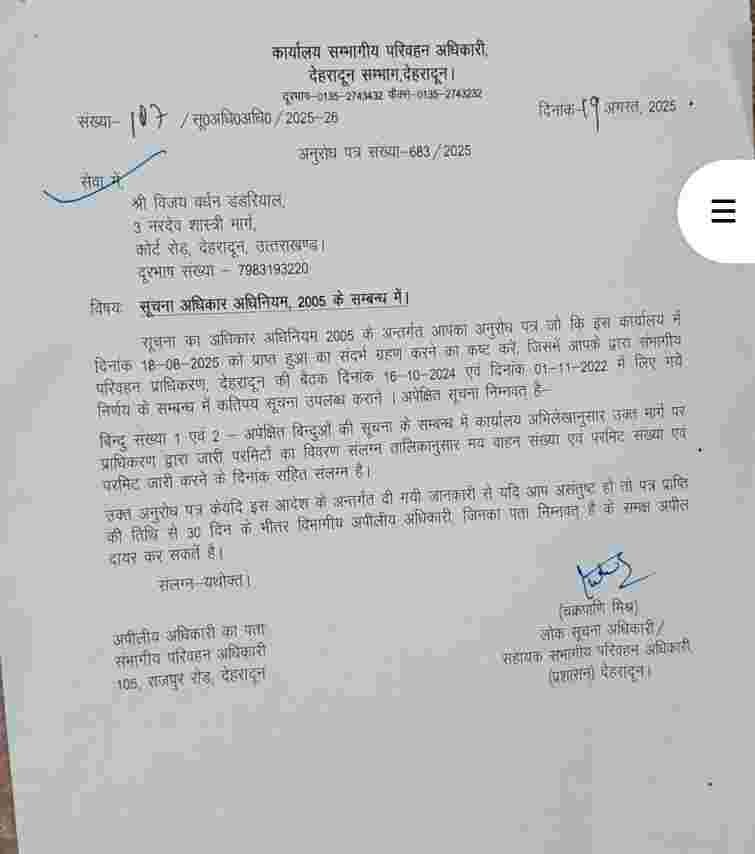 कार्यालय सम्भागीय परिवहन अधिकारी,
देहरादून सम्भाग,देहरादून।
दूरभाष-0135-2743432 फैक्स-0135-2743232
संख्या- 107 /सू0अधि0अधि0 /2025-26
दिनांक-19 अगस्त, 2025
अनुरोध पत्र संख्या-683/2025
सेवा में,
श्री विजय वर्धन डंडरियाल,
3 नरदेव शास्त्री मार्ग,
कोर्ट रोड़, देहरादून, उत्तराखण्ड।
दूरभाष संख्या - 7983193220
विषयः सूचना अधिकार अधिनियम, 2005 के सम्बन्ध में।
सूचना का अधिकार अधिनियम 2005 के अन्तर्गत आपका अनुरोध पत्र जो कि इस कार्यालय में
दिनांक 18-08-2025 को प्राप्त हुआ का संदर्भ ग्रहण करने का कष्ट करें, जिसमें आपके द्वारा संभागीय
परिवहन प्राधिकरण, देहरादून की बैठक दिनांक 16-10-2024 एवं दिनांक 01-11-2022 में लिए गये
निर्णय के सम्बन्ध में कतिपय सूचना उपलब्ध कराने । अपेक्षित सूचना निम्नवत् है-
बिन्दु संख्या 1 एवं 2 - अपेक्षित बिन्दुओं की सूचना के सम्बन्ध में कार्यालय अभिलेखानुसार उक्त मार्ग पर
प्राधिकरण द्वारा जारी परमिटों का विवरण संलग्न तालिकानुसार मय वाहन संख्या एवं परमिट संख्या एवं
परमिट जारी करने के दिनांक सहित संलग्न है।
उक्त अनुरोध पत्र केयदि इस आदेश के अन्तर्गत दी गयी जानकारी से यदि आप असंतुष्ट हो तो पत्र प्राप्ति
की तिथि से 30 दिन के भीतर विभागीय अपीलीय अधिकारी, जिनका पता निम्नवत् है के समक्ष अपील
दायर कर सकतें है।
संलग्न-यथोक्त।
(चक्रपाणि मिश्र)
लोक सूचना अधिकारी/
सहायक संभागीय परिवहन अधिकारी,
(प्रशासन) देहरादून।
अपीलीय अधिकारी का पता
संभागीय परिवहन अधिकारी
105, राजपुर रोड़, देहरादून